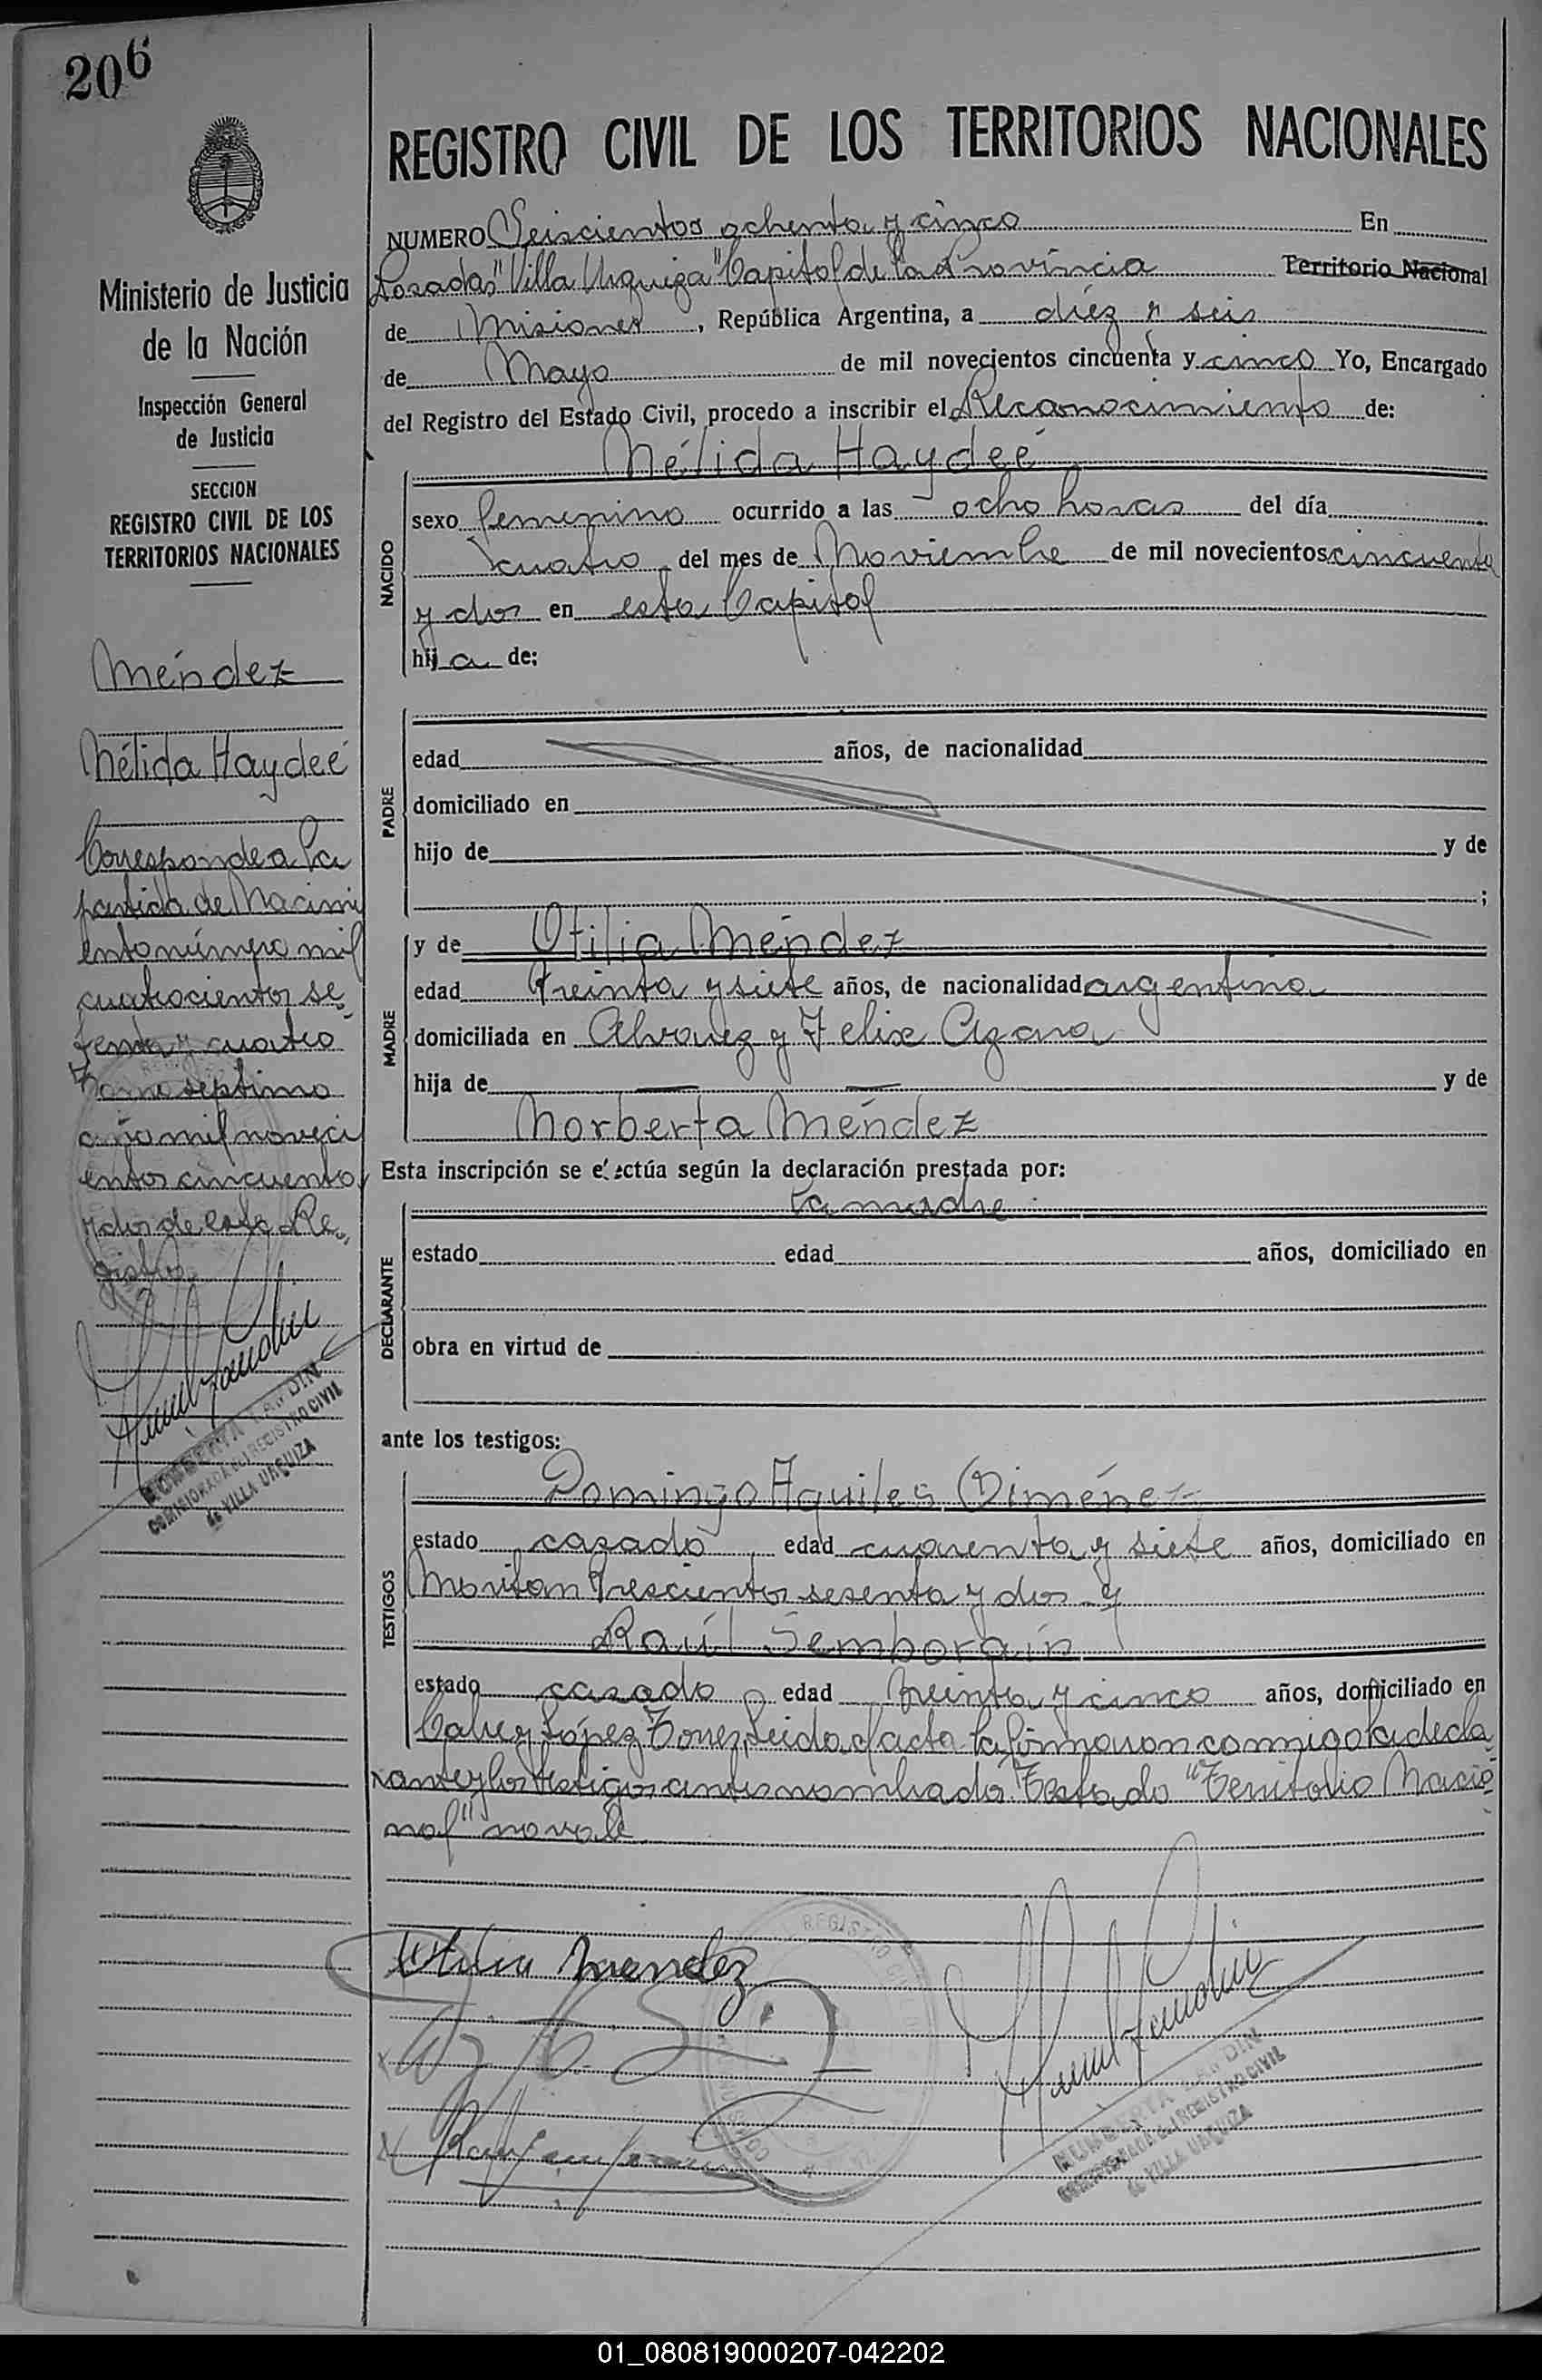 206
REGISTRO CIVIL DE LOS TERRITORIOS NACIONALES
NUMERO Seiscientos ochenta y cinco En
Posadas "Villa Urquiza" Capital de la Provincia Territorio Nacional
de Misiones, República Argentina, a diez y seis
de Mayo de mil novecientos cincuenta y cinco Yo, Encargado
del Registro del Estado Civil, procedo a inscribir el Reconocimiento de:
NACIDO
Nélida Haydeé
sexo femenino ocurrido a las ocho horas del día
cuatro del mes de Noviembre de mil novecientos cincuenta
y dos en esta Capital
hija de:
PADRE
edad años, de nacionalidad
domiciliado en
hijo de y de
;
MADRE
y de Otilia Méndez
edad treinta y siete años, de nacionalidad argentina
domiciliada en Alvarez y Felix Azara
hija de — — y de
Norberta Méndez
Esta inscripción se efectúa según la declaración prestada por:
DECLARANTE
la madre
estado edad años, domiciliado en
obra en virtud de
ante los testigos:
TESTIGOS
Domingo Aquiles Giménez
estado casado edad cuarenta y siete años, domiciliado en
trescientos sesenta y dos y
Raúl Semborain
estado casado edad treinta y cinco años, domiciliado en
López Torres, Leida el acta la firmaron conmigo la decla
rante y los testigos antes nombrado Testado "Territorio Nacio
nal" no vale
Otilia Mendez
COMISIONADA del REGISTRO CIVIL
de VILLA URQUIZA
Ministerio de Justicia
de la Nación
Inspección General
de Justicia
SECCION
REGISTRO CIVIL DE LOS
TERRITORIOS NACIONALES
Méndez
Nélida Haydeé
Corresponde a la
partida de Nacimi
ento número mil
cuatrocientos se
tenta y cuatro
Tomo septimo
año mil noveci
entos cincuenta
y dos de este Re
gistro
COMISIONADA del REGISTRO CIVIL
de VILLA URQUIZA
01_080819000207-042202